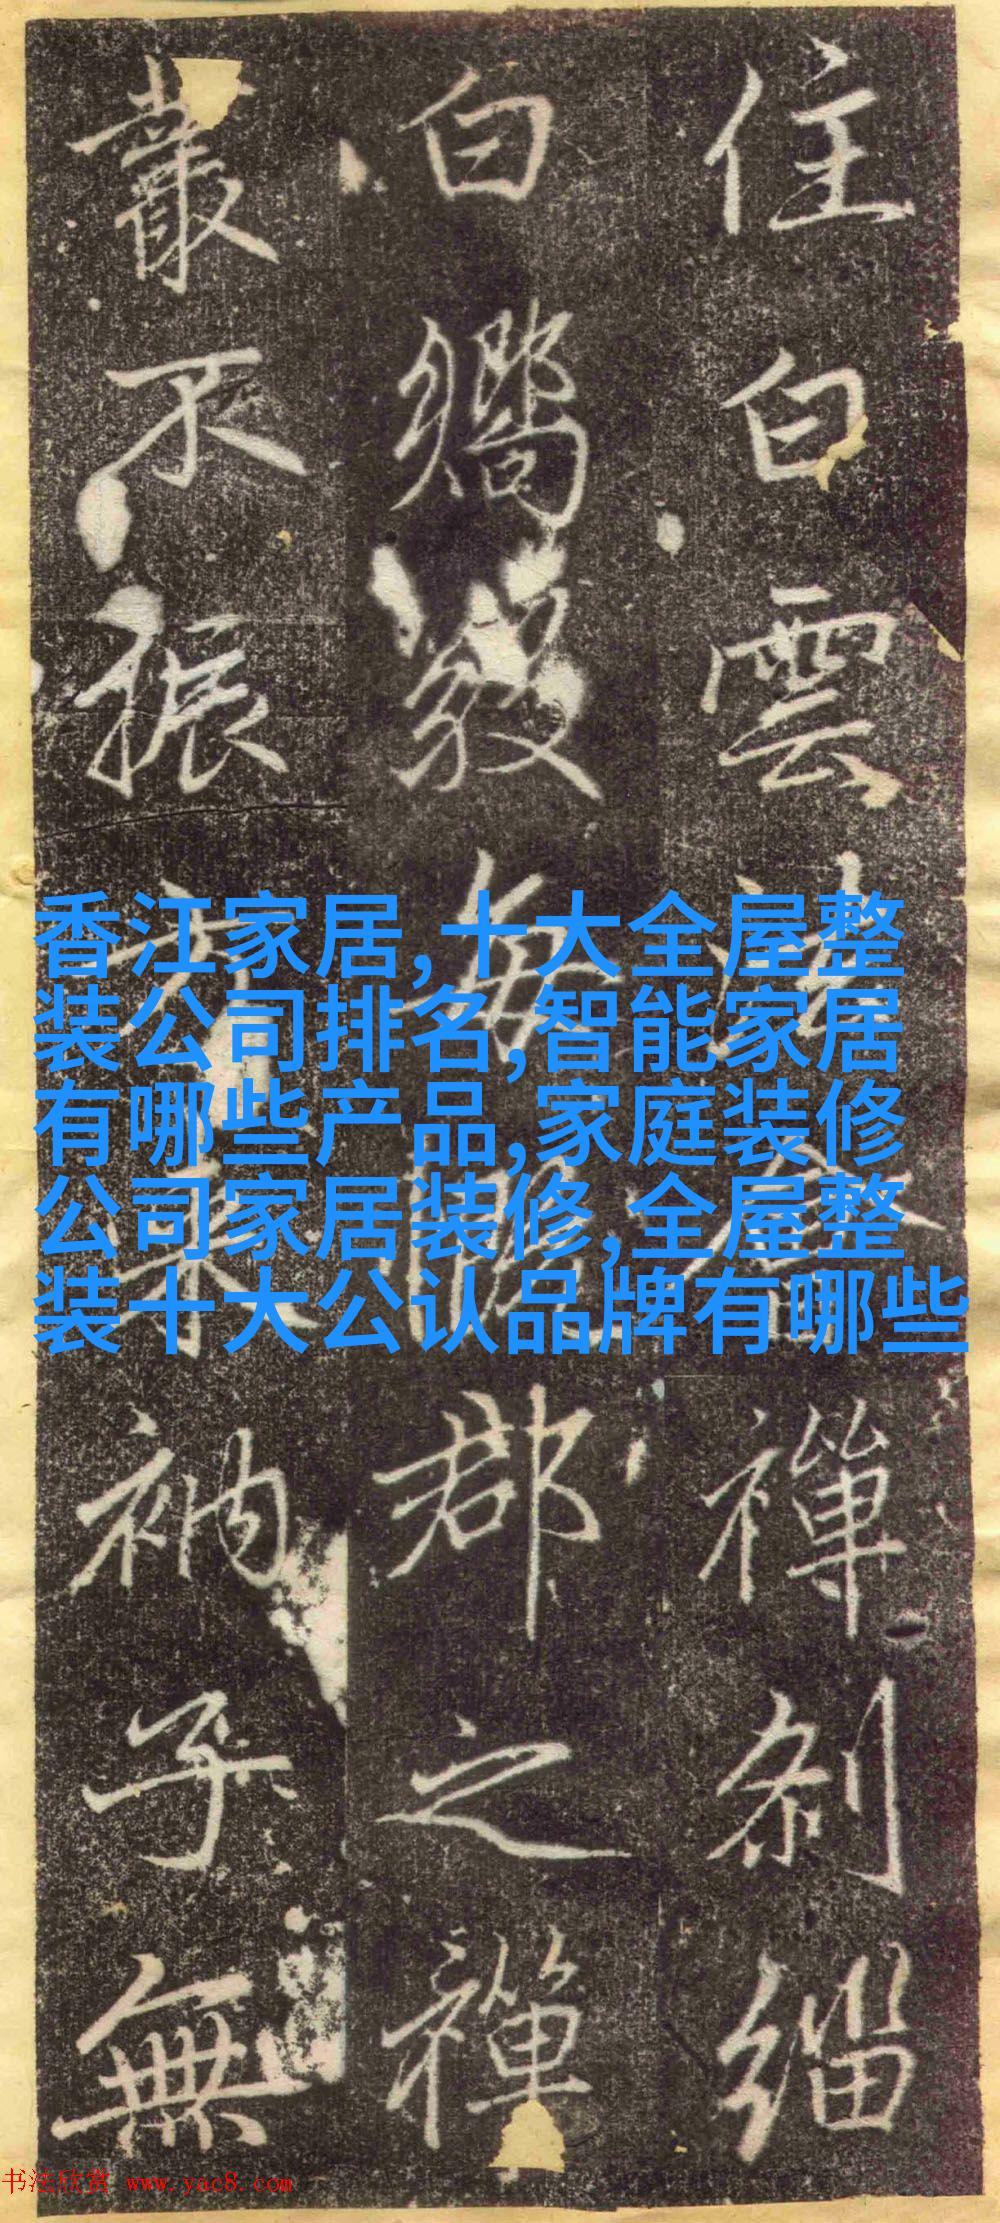 住白雲法禪刹緇
白每郡之禪
叢不振方來衲子無
香江家居,十大全屋整
装公司排名,智能家居
有哪些产品,家庭装修
公司家居装修,全屋整
装十大公认品牌有哪些
书法欣赏 www.yac8.com